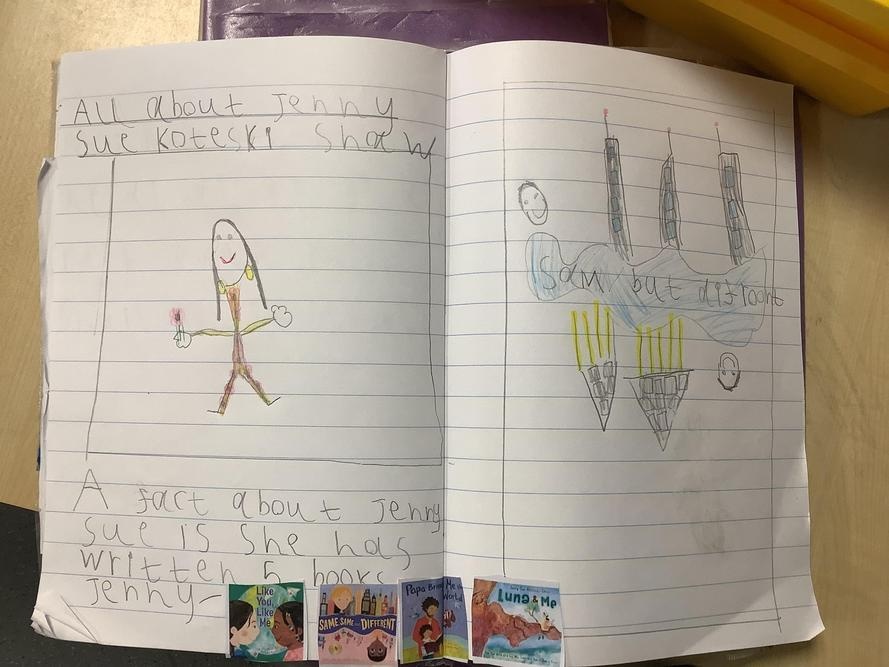 All about Jenny
Sue Koteski Shaw
A fact about Jenny
Sue is She has
written 5 books
Jenny-
Sam but difroont
Like
You,
Like
Me
SAME SAME but DIFFERENT
Papa Me
World
Luna & Me